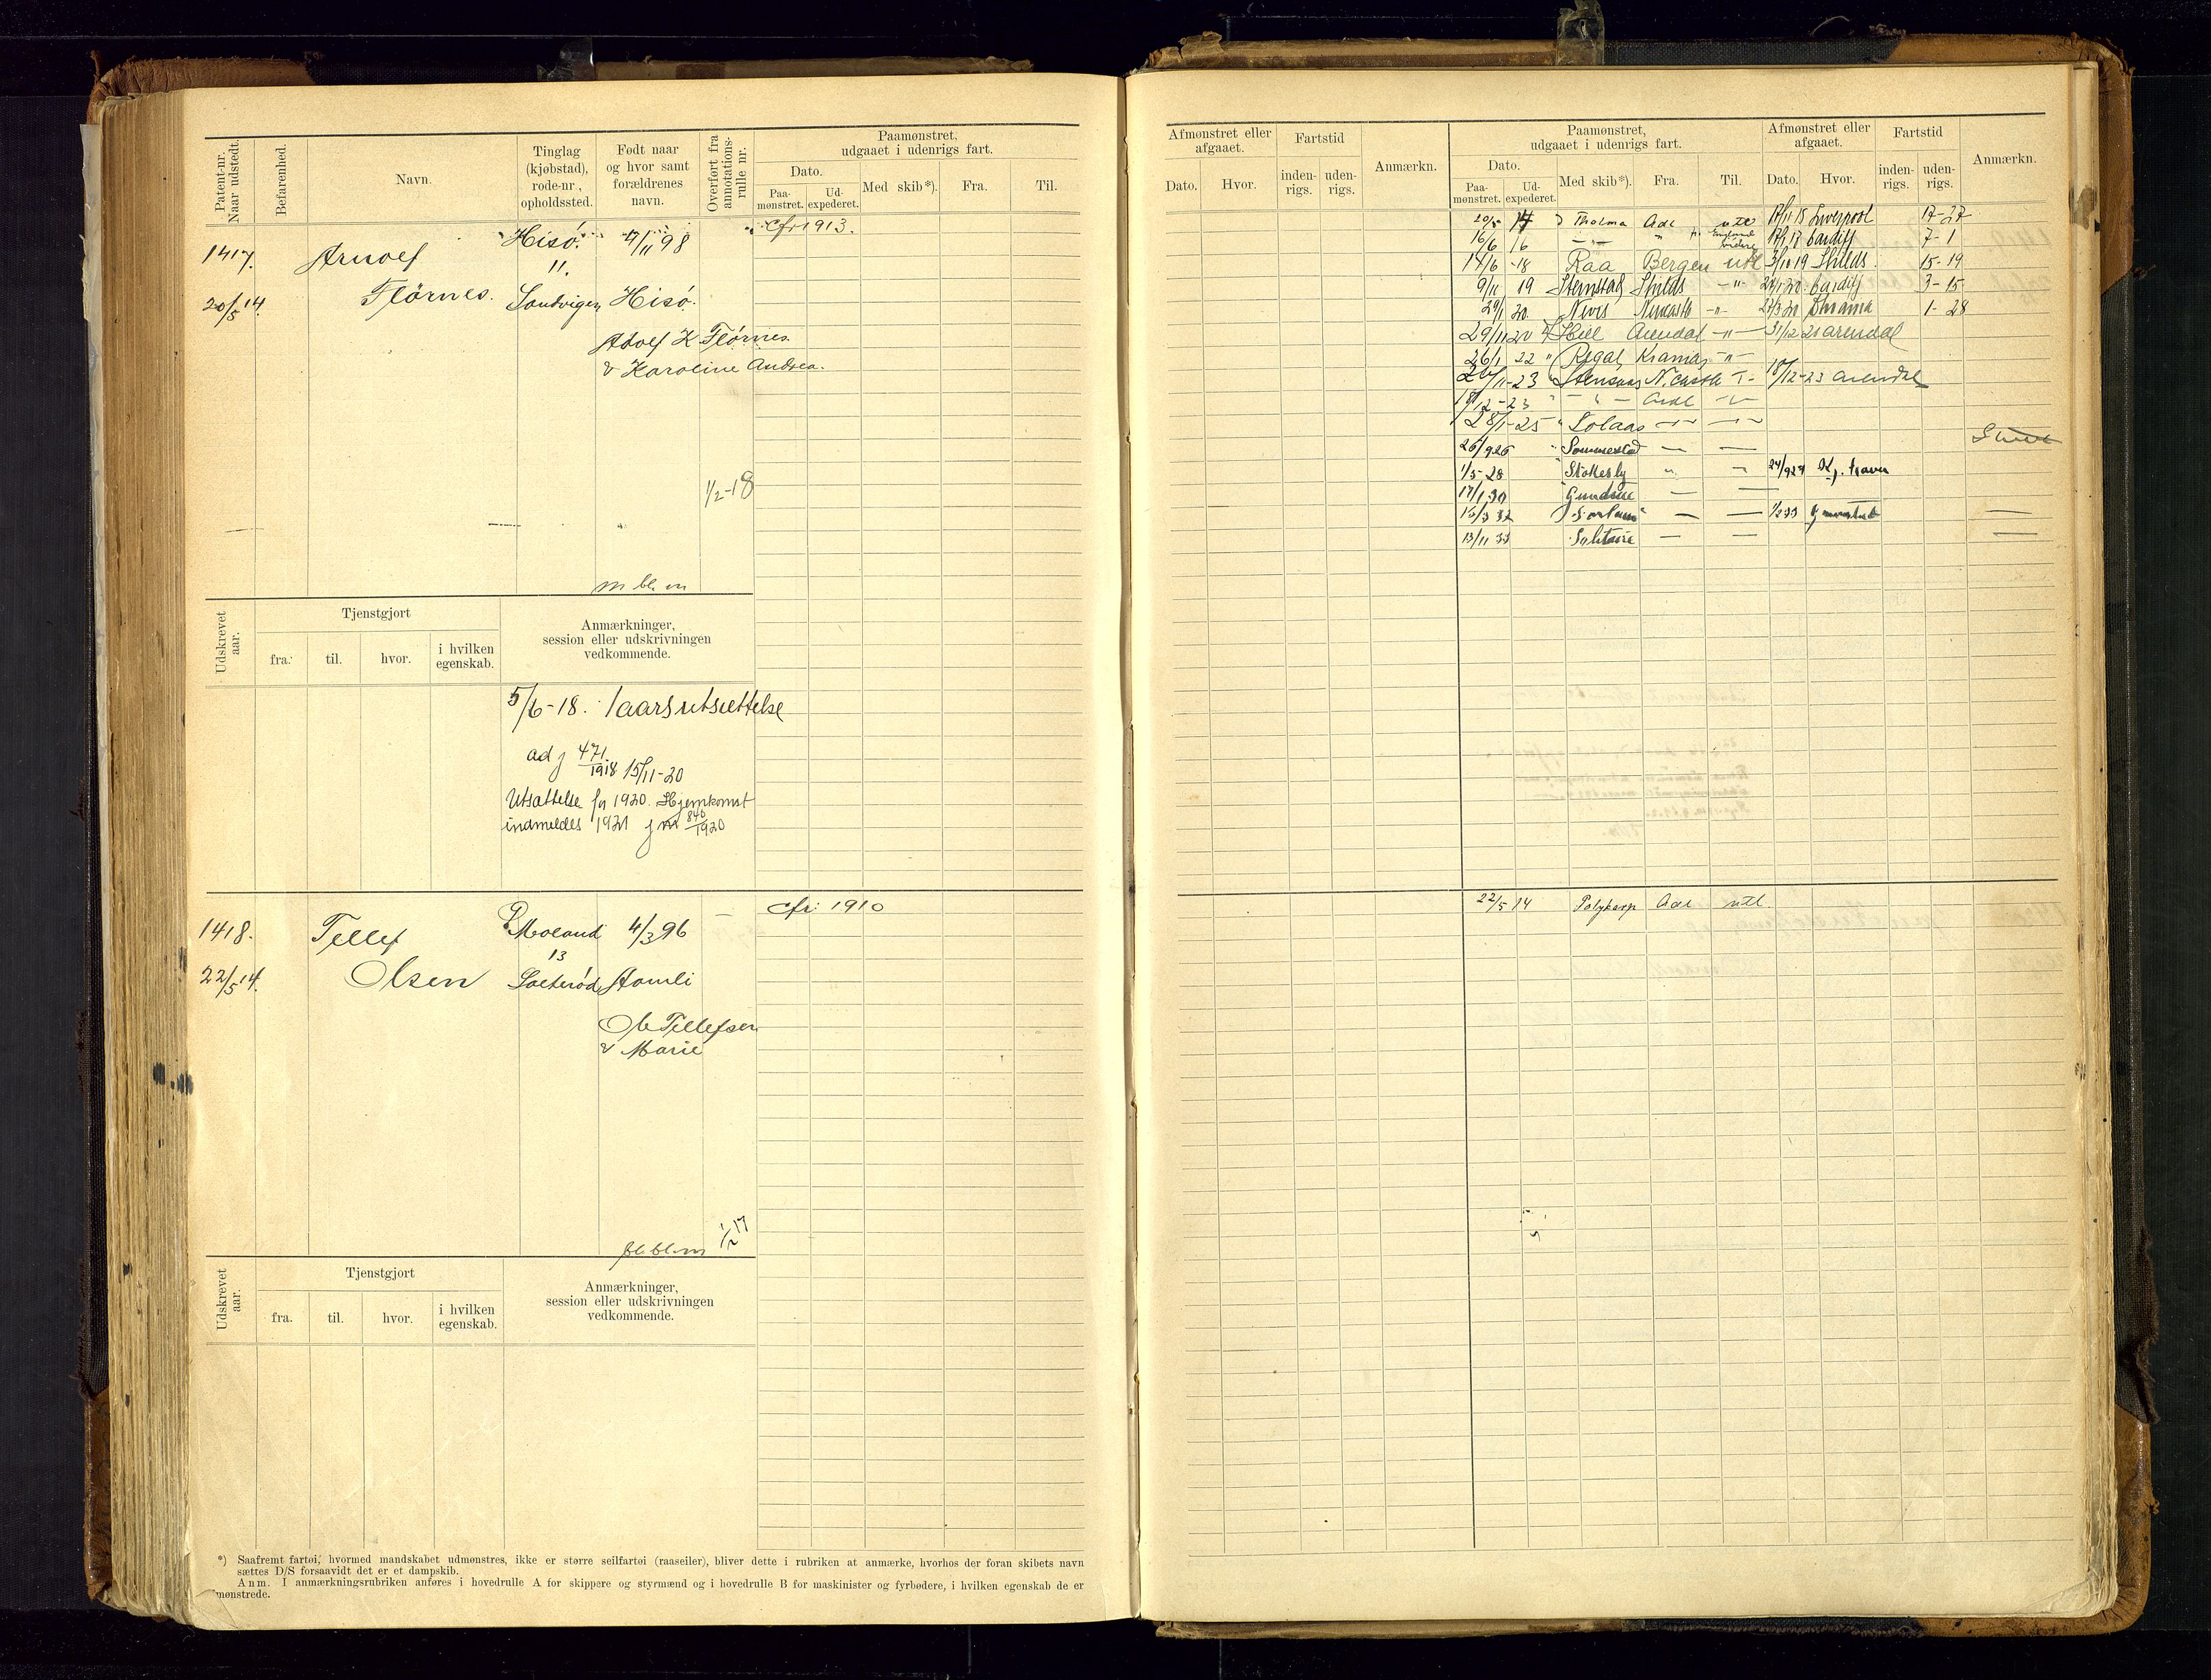 Patent-nr. Naar udstedt.
Befarenhed.
Navn.
Tinglag (kjøbstad), rode-nr., opholdssted.
Født naar og hvor samt forældrenes navn.
Overført fra annotations-rulle nr.
Paamønstret, udgaaet i udenrigs fart.
Dato.
Paa-mønstret.
Ud-expederet.
Med skib*).
Fra.
Til.
cfr 1913.
1417.
Arnolf
Hisö.
4/11 98
11.
20/5 14.
Flörnes.
Sandvigen
Hisö.
Adolf K Flörnes
& Karoline Andrea.
1/2-18
m bl. m
Udskrevet aar.
Tjenstgjort
fra.
til.
hvor.
i hvilken egenskab.
Anmærkninger, session eller udskrivningen vedkommende.
5/6-18. 1 aars utsættelse
ad j 471/1918 15/11-20
Utsættelse for 1920. Hjemkomst
indmeldes 1921 j nr 840/1920
cfr: 1910
1418.
Tellef
Ø Moland
4/3 96
13
22/5 14.
Olsen
Sæteröd
Aamli
Ole Tellefsen
& Marie
1/2 17
bl. bl. m
Udskrevet aar.
Tjenstgjort
fra.
til.
hvor.
i hvilken egenskab.
Anmærkninger, session eller udskrivningen vedkommende.
*) Saafremt fartøi, hvormed mandskabet udmønstres, ikke er større seilfartøi (raaseiler), bliver dette i rubriken at anmærke, hvorhos der foran skibets navn
sættes D/S forsaavidt det er et dampskib.
Anm. I anmærkningsrubriken anføres i hovedrulle A for skippere og styrmænd og i hovedrulle B for maskinister og fyrbødere, i hvilken egenskab de er
mønstrede.
Afmønstret eller afgaaet.
Dato.
Hvor.
Fartstid
inden-rigs.
uden-rigs.
Anmærkn.
Paamønstret, udgaaet i udenrigs fart.
Dato.
Paa-mønstret.
Ud-expederet.
Med skib*).
Fra.
Til.
Afmønstret eller afgaaet.
Dato.
Hvor.
Fartstid
inden-rigs.
uden-rigs.
Anmærkn.
20/5 14 Thelma Adl utl 17/11 15 Liverpool 17-27
16/6 16 —"— " England videre 17/1 17 Cardiff 7-1
14/6 -18 Raa Bergen utl 3/10 19 Shilds 15-19
9/10 19 Stemstad Shilds —"— 24/1 20 Cardiff 3-15
29/1 20 Nevis Newcastle —"— 27/3 20 1-28
29/11 20 Hill Arendal —"— 31/12 21 Arendal
26/1 22 " Regal —"—
24/11-23 " Stensaas N.Castle 18/12-23 Arendal
18/12-23 " — " — Ardl
28/1-25 " Solaas
26/9 26 " Sommerstad — —
1/5-28 " Stokesby " 24/9 29
17/1 30 — —
15/3 32 — — 1/2 33 —
13/11 33 Solitaire — — —
22/5 14 Polykarp Adl utl.